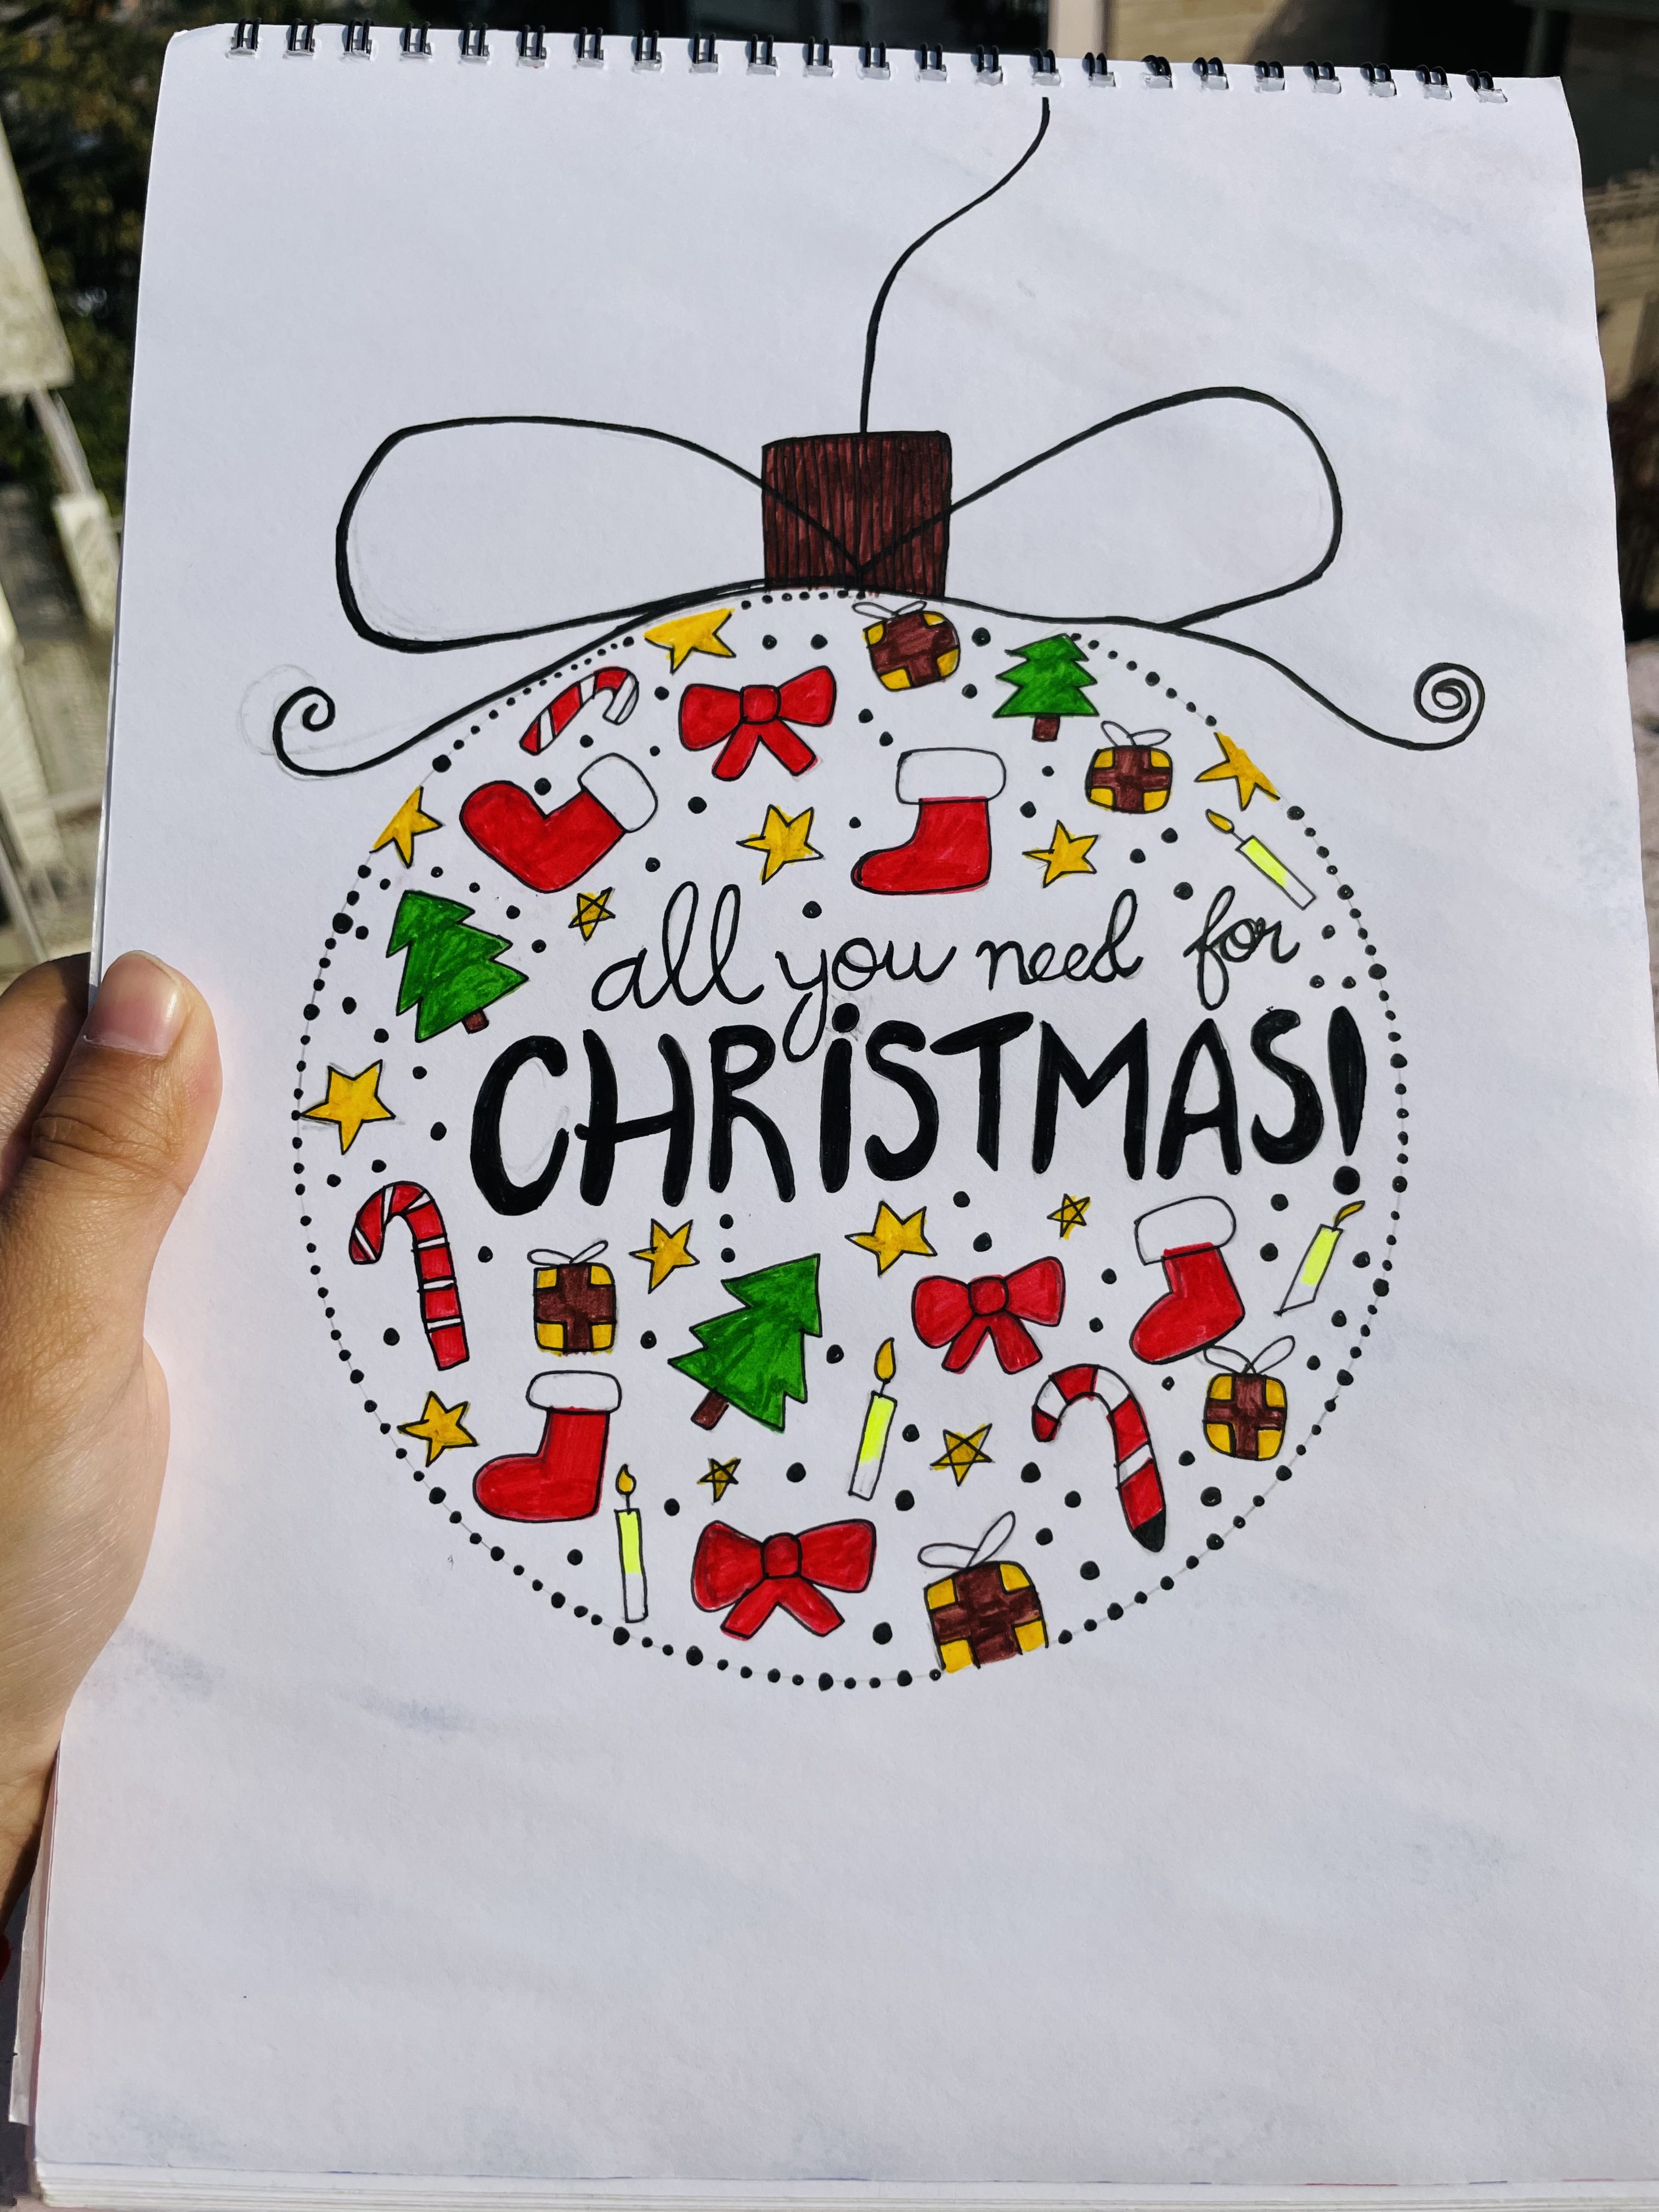 all you need for
CHRiSTMAS!